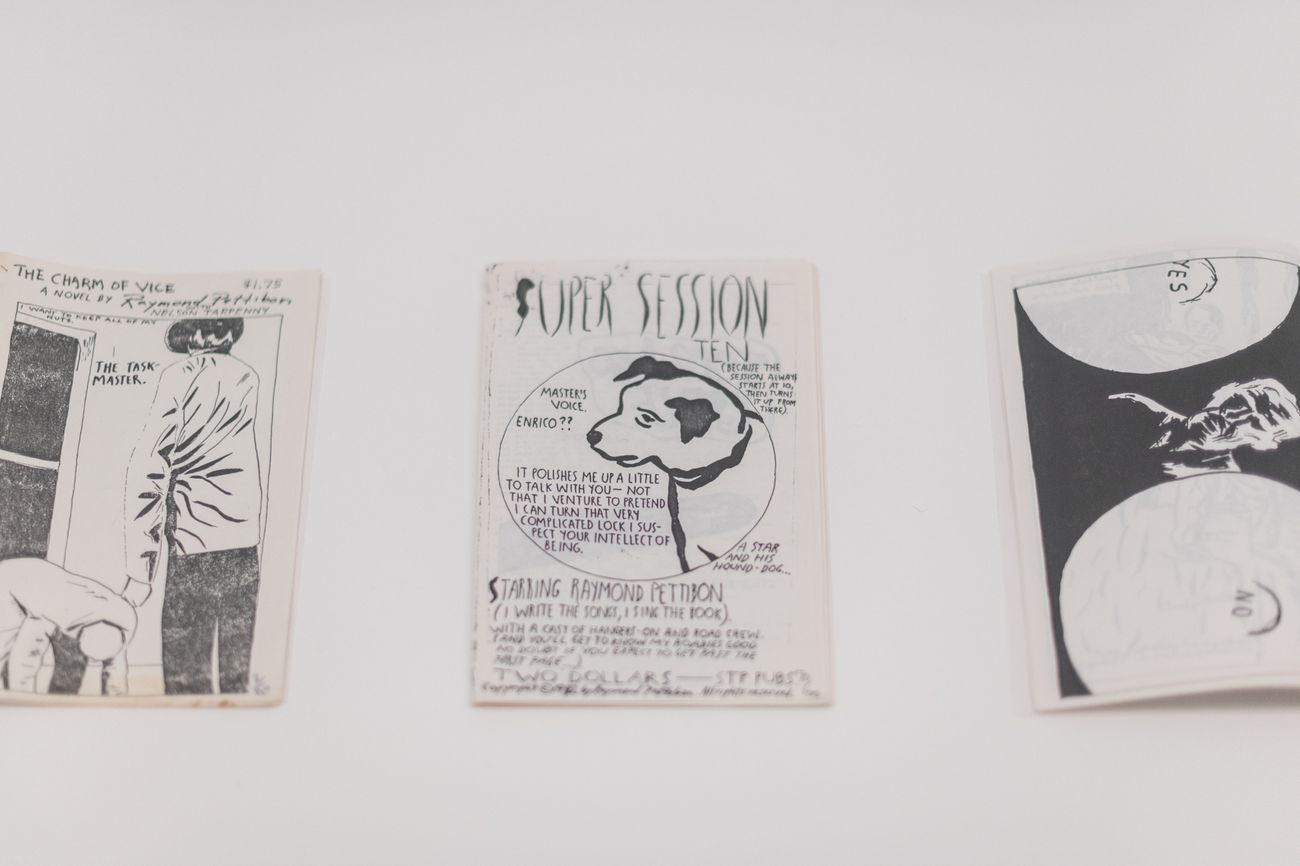 THE CHARM OF VICE $1.75
A NOVEL BY Raymond Pettibon
NELSON TARPENNY
I WANT TO KEEP ALL OF MY
NUTS.
THE TASK-
MASTER.
SUPER SESSION
TEN
(BECAUSE THE
SESSION ALWAYS
STARTS AT 10,
THEN TURNS
IT UP FROM
THERE).
MASTER'S
VOICE.
ENRICO??
IT POLISHES ME UP A LITTLE
TO TALK WITH YOU— NOT
THAT I VENTURE TO PRETEND
I CAN TURN THAT VERY
COMPLICATED LOCK I SUS-
PECT YOUR INTELLECT OF
BEING.
A STAR
AND HIS
HOUND-DOG...
STARRING RAYMOND PETTIBON
(I WRITE THE SONGS, I SING THE BOOK).
WITH A CAST OF HANGERS-ON AND ROAD CREW.
(AND YOU'LL GET TO KNOW MY ROADIES GOOD
NO DOUBT IF YOU EXPECT TO GET PAST THE
FIRST PAGE...)
TWO DOLLARS — STP PUBS
Copyright by Raymond Pettibon. All rights reserved.
YES
NO